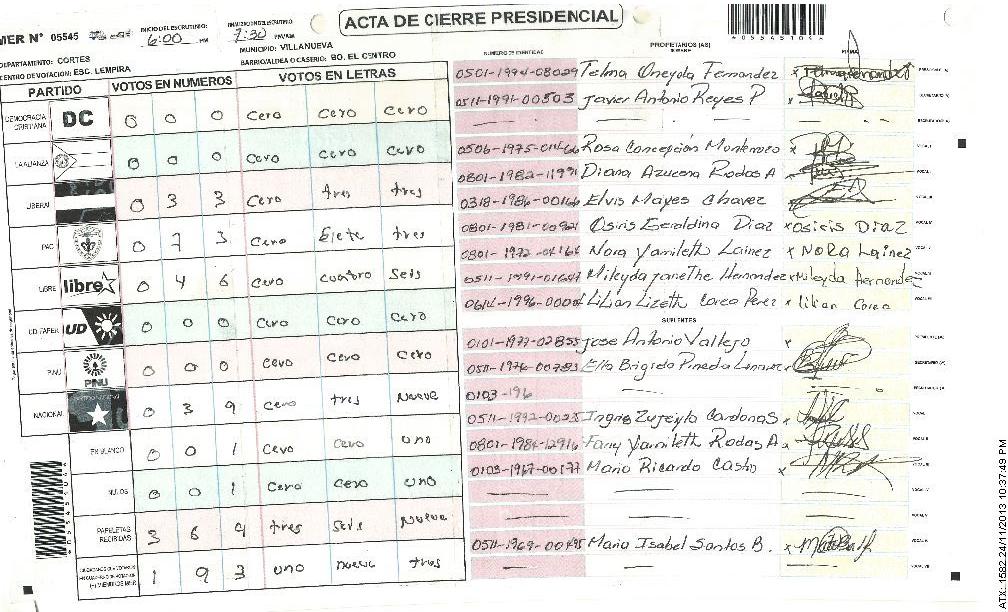 ACTA DE CIERRE PRESIDENCIAL
MER N° 05545
INICIO DEL ESCRUTINIO 6:00 PM
7:30 PM/AM
DEPARTAMENTO: CORTES
MUNICIPIO: VILLANUEVA
CENTRO DE VOTACION: ESC. LEMPIRA
BARRIO/ALDEA O CASERIO: BO. EL CENTRO
PARTIDO VOTOS EN NUMEROS VOTOS EN LETRAS
DEMOCRACIA CRISTIANA DC 0 0 0 cero cero cero
LA ALIANZA 0 0 0 cero cero cero
LIBERAL 0 3 3 cero tres tres
PAC 0 7 3 cero siete tres
LIBRE libre 0 4 6 cero cuatro seis
UD UD 0 0 0 cero cero cero
PINU PINU 0 0 0 cero cero cero
NACIONAL 0 3 9 cero tres nueve
EN BLANCO 0 0 1 cero cero uno
NULOS 0 0 1 cero cero uno
PAPELETAS RECIBIDAS 3 6 9 tres seis nueve
1 9 3 uno nueve tres
NUMERO DE IDENTIDAD PROPIETARIOS (AS) NOMBRE FIRMA
0501-1994-08029 Telma Oneyda Fernandez
0511-1991-00503 Javier Antonio Reyes P
0506-1975-01466 Rosa Concepción
0801-1982-11991 Diana Azucena Rodas A
0318-1986-00166 Elvis Mayes Chavez
0801-1981-00921 Osiris Geraldina Diaz x Osiris Diaz
0801-1972-04164 Nora Yamileth Lainez x Nora Lainez
0511-1991-01647 Mileyda Janethe Hernandez x Mileyda Hernandez
Lilian Lizeth Carea Perez x Lilian Carea
SUPLENTES
0101-1977-02855 Jose Antonio Vallejo
0511-1974-00783 Brigida Pineda
0103-196
Cardona S
0801-1984-12916 Fany Yamileth Rodas A
0103-1967-00177 Mario Ricardo Castro
0511-1969-00495 Maria Isabel Santos B.
4055451044
ATX: 1582.24/11/2013 10:37:49 PM